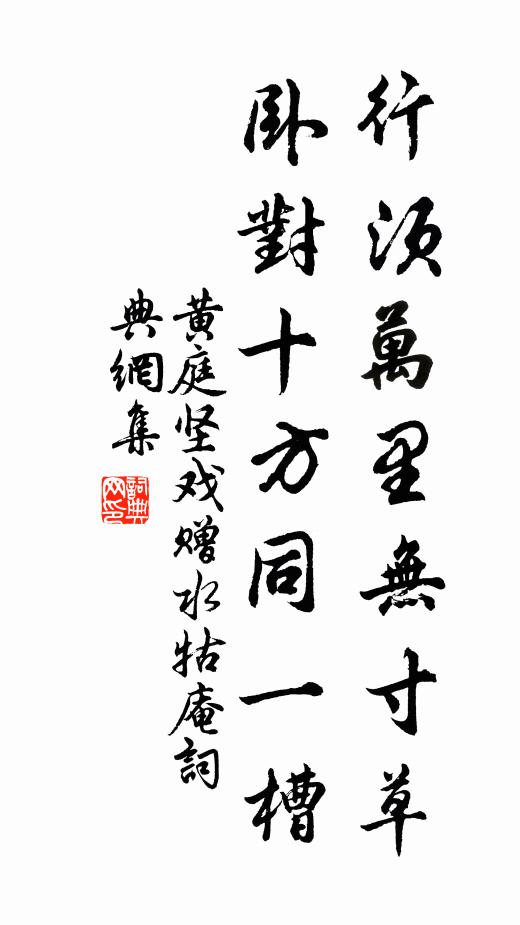 行須萬里無寸草
卧對十方同一槽
黄庭坚戏赠水牯庵詞
典網集
詞典网印